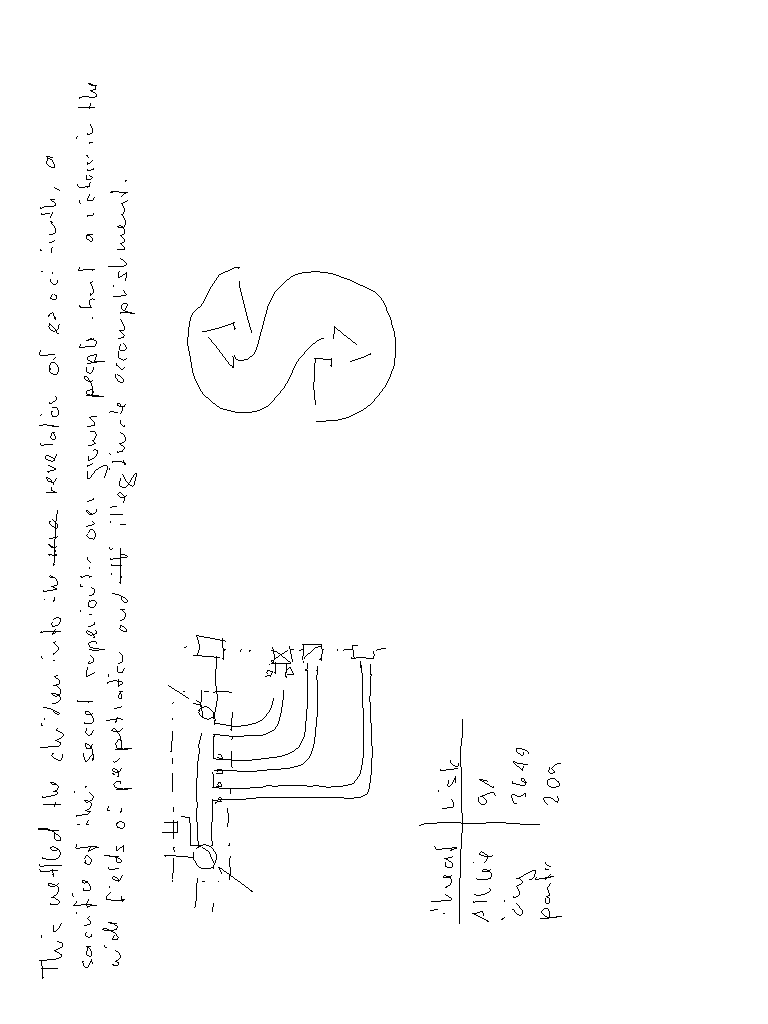 This nettled the children into the revelation of associ truth, a
sacrifice of their secret superiority over grown people had a victory in the
wide fields of perpetration and illegitimate accomplishment.
thead Lisk
Allie 91
icny 3649
partr 209